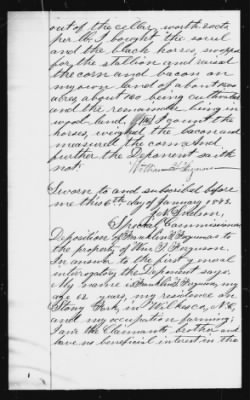 out of the cellar, worth 20cts
per lb. I bought the sorrel
and the black horses, swapped
for the stallion and raised
the corn and bacon on
my own land of about 1200
acres, about 160 being cultivated
and the remainder being in
wood land. I count the
horses, weighed the bacon and
measured the corn. And
further the Deponent saith
not.
Sworn to and subscribed before
me this 6th day of January 1873.
Special Commissioner
Deposition of Franklin Ferguson to
the property of Wm. T. Ferguson.
In answer to the first general
interrogatory the Deponent says.
My name is Franklin Ferguson, my
age 62 years, my residence on
Stony Fork, in Wilkes co., N.C.
and my occupation farming;
I am the Claimant's brother and
have no beneficial interest in the